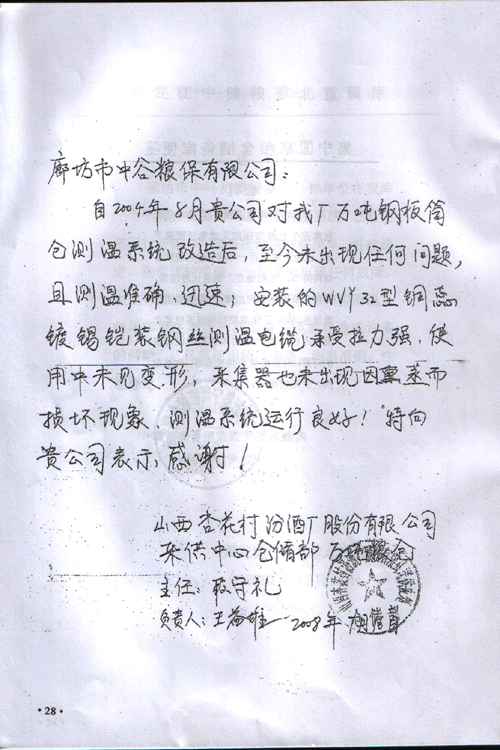 廊坊市中谷粮保有限公司：
自2004年8月贵公司对我厂万吨钢板筒
仓测温系统改造后，至今未出现任何问题，
且测温准确、迅速；安装的WVY32型铜蕊
镀锡铠装钢丝测温电缆承受拉力强，使
用中未见变形，采集器也未出现因熏蒸而
损坏现象，测温系统运行良好！特向
贵公司表示感谢！
山西杏花村汾酒厂股份有限公司
采供中心仓储部万吨粮仓
主任：守礼
负责人：王雄 2008年
·28·